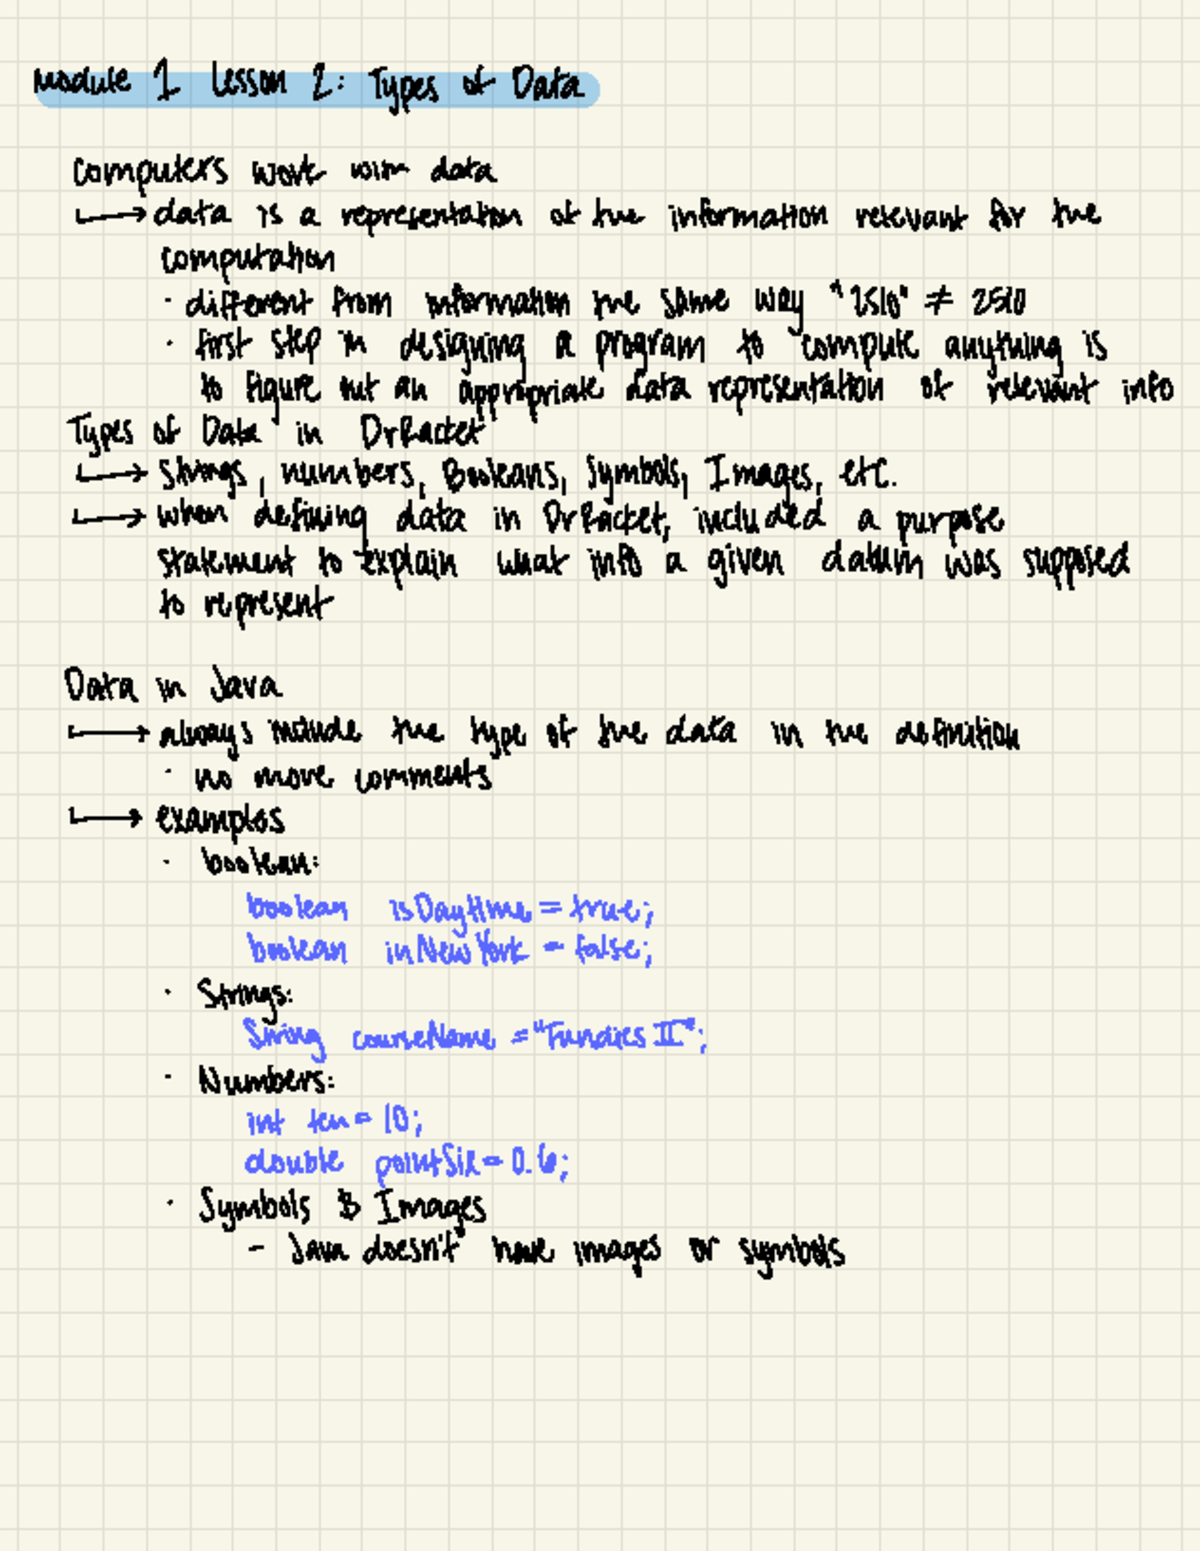 Module 1 Lesson 2: Types of Data
Computers work with data
↳ data is a representation of the information relevant for the
computation
· different from information the same way "2510" ≠ 2510
· first step in designing a program to compute anything is
to figure out an appropriate data representation of relevant info
Types of Data in DrRacket
↳ Strings, numbers, Booleans, Symbols, Images, etc.
↳ when defining data in DrRacket, included a purpose
statement to explain what info a given datum was supposed
to represent
Data in Java
↳ always include the type of the data in the definition
· no more comments
↳ examples
· boolean:
boolean isDaytime = true;
boolean inNewYork = false;
· Strings:
String courseName = "Fundies II";
· Numbers:
int ten = 10;
double pointSix = 0.6;
· Symbols & Images
- Java doesn't have images or symbols